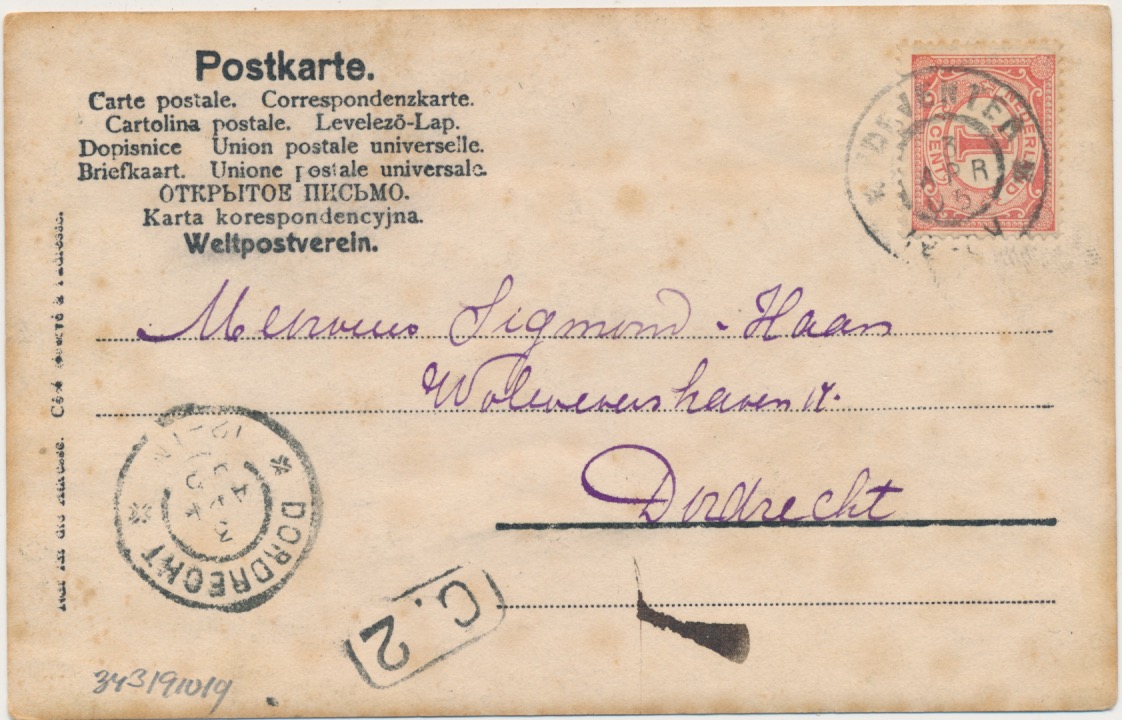 Postkarte.
Carte postale. Correspondenzkarte.
Cartolina postale. Levelező-Lap.
Dopisnice Union postale universelle.
Briefkaart. Unione postale universale.
ОТКРЫТОЕ ПИСЬМО.
Karta korespondencyjna.
Weltpostverein.
NEDERLAND
1
CENT
DEVENTER
3
APR
Sigmond - Haan
Wolwevershaven
Dordrecht
DORDRECHT
3
C. 2
Nur für die Adresse. Côté réservé à l'adresse.
343191019